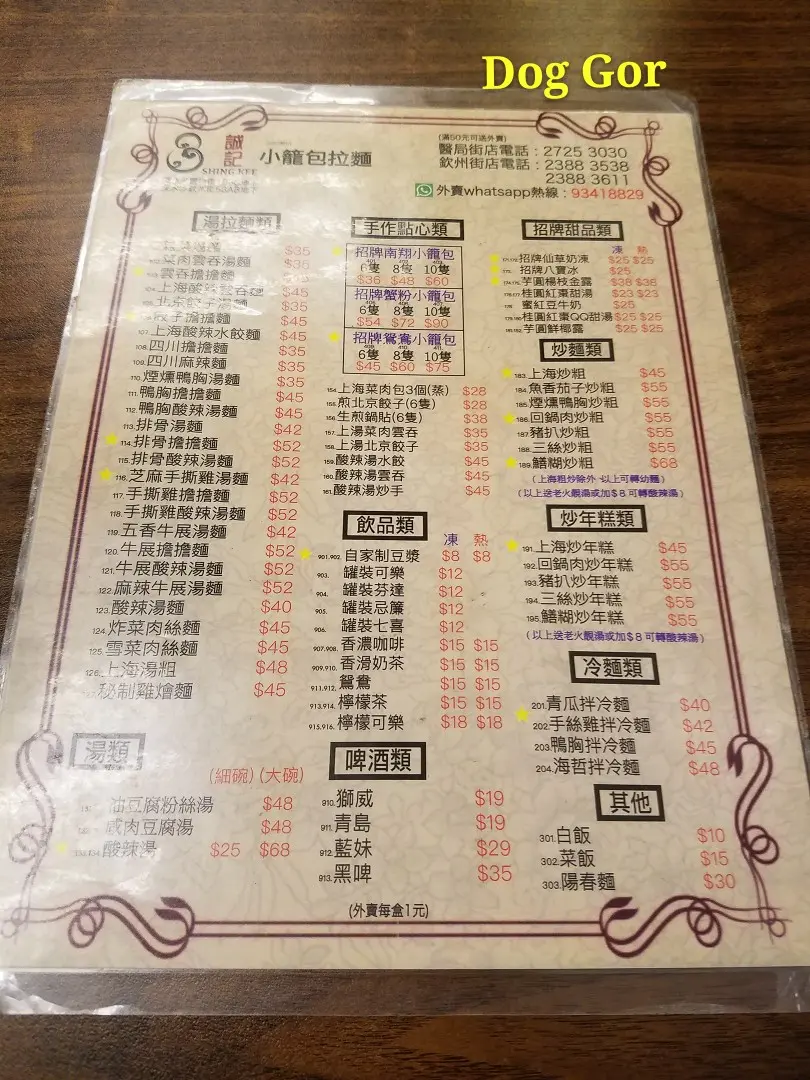 Dog Gor
誠記
SHING KEE
小籠包拉麵
(滿50元可送外賣)
醫局街店電話：2725 3030
欽州街店電話：2388 3538
2388 3611
外賣whatsapp熱線：93418829
湯拉麵類
$35
菜肉雲吞湯麵 $35
雲吞擔擔麵 $45
104.上海酸辣雲吞麵 $45
北京餃子湯麵 $35
餃子擔擔麵 $45
107.上海酸辣水餃麵 $45
108.四川擔擔麵 $35
109.四川麻辣麵 $35
110.煙燻鴨胸湯麵 $35
111.鴨胸擔擔麵 $45
112.鴨胸酸辣湯麵 $45
113.排骨湯麵 $42
114.排骨擔擔麵 $52
115.排骨酸辣湯麵 $52
116.芝麻手撕雞湯麵 $42
117.手撕雞擔擔麵 $52
118.手撕雞酸辣湯麵 $52
119.五香牛展湯麵 $42
120.牛展擔擔麵 $52
121.牛展酸辣湯麵 $52
122.麻辣牛展湯麵 $52
123.酸辣湯麵 $40
124.炸菜肉絲麵 $45
125.雪菜肉絲麵 $45
126.上海湯粗 $48
秘制雞燴麵 $45
湯類
(細碗) (大碗)
油豆腐粉絲湯 $48
咸肉豆腐湯 $48
133.134.酸辣湯 $25 $68
手作點心類
招牌南翔小籠包
6隻 8隻 10隻
$36 $48 $60
招牌蟹粉小籠包
6隻 8隻 10隻
$54 $72 $90
招牌鴛鴦小籠包
6隻 8隻 10隻
$45 $60 $75
154.上海菜肉包3個(蒸) $28
155.煎北京餃子(6隻) $28
156.生煎鍋貼(6隻) $38
157.上湯菜肉雲吞 $35
158.上湯北京餃子 $35
159.酸辣湯水餃 $45
160.酸辣湯雲吞 $45
161.酸辣湯炒手 $45
飲品類
凍 熱
901.902.自家制豆漿 $8 $8
903.罐裝可樂 $12
904.罐裝芬達 $12
905.罐裝忌簾 $12
906.罐裝七喜 $12
907.908.香濃咖啡 $15 $15
909.910.香滑奶茶 $15 $15
911.912.鴛鴦 $15 $15
913.914.檸檬茶 $15 $15
915.916.檸檬可樂 $18 $18
啤酒類
910.獅威 $19
911.青島 $19
912.藍妹 $29
913.黑啤 $35
(外賣每盒1元)
招牌甜品類
凍 熱
招牌仙草奶凍 $25 $25
招牌八寶冰 $25
芋圓楊枝金露 $38 $38
桂圓紅棗甜湯 $23 $23
蜜紅豆牛奶 $25
桂圓紅棗QQ甜湯 $25 $25
芋圓鮮椰露 $25 $25
炒麵類
183.上海炒粗 $45
184.魚香茄子炒粗 $55
185.煙燻鴨胸炒粗 $55
186.回鍋肉炒粗 $55
187.豬扒炒粗 $55
188.三絲炒粗 $55
189.鱔糊炒粗 $68
(上海粗炒除外 以上可轉幼麵)
(以上送老火靚湯或加$8可轉酸辣湯)
炒年糕類
191.上海炒年糕 $45
192.回鍋肉炒年糕 $55
193.豬扒炒年糕 $55
194.三絲炒年糕 $55
195.鱔糊炒年糕 $55
(以上送老火靚湯或加$8可轉酸辣湯)
冷麵類
201.青瓜拌冷麵 $40
202.手絲雞拌冷麵 $42
203.鴨胸拌冷麵 $45
204.海哲拌冷麵 $48
其他
301.白飯 $10
302.菜飯 $15
303.陽春麵 $30